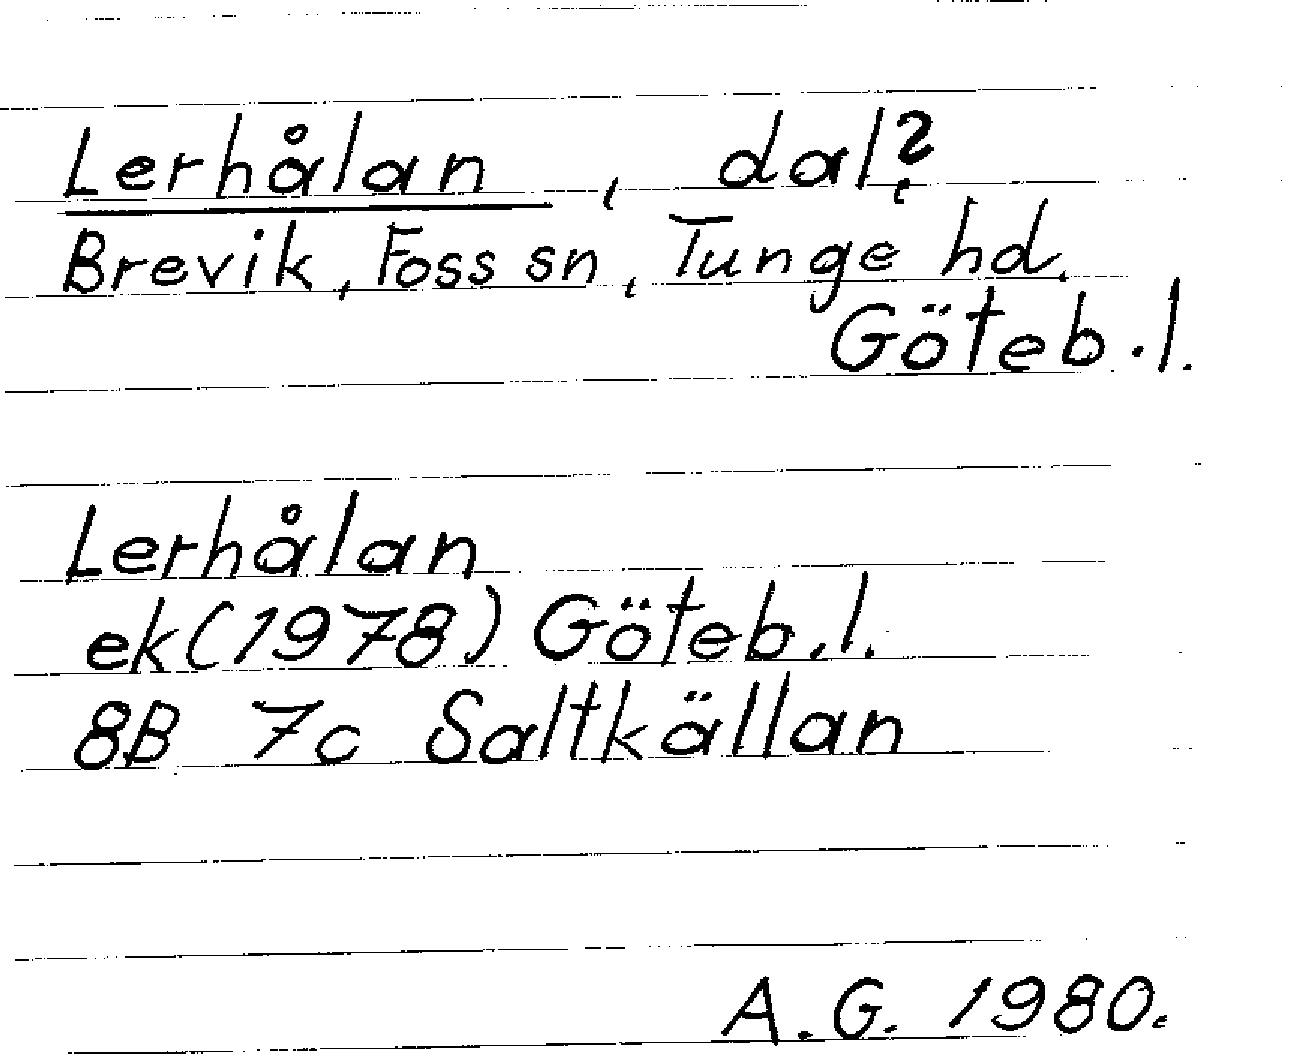 Lerhålan, dal?
Brevik, Foss sn, Tunge hd.
Göteb.l.
Lerhålan
ek(1978) Göteb.l.
8B 7c Saltkällan
A.G. 1980.